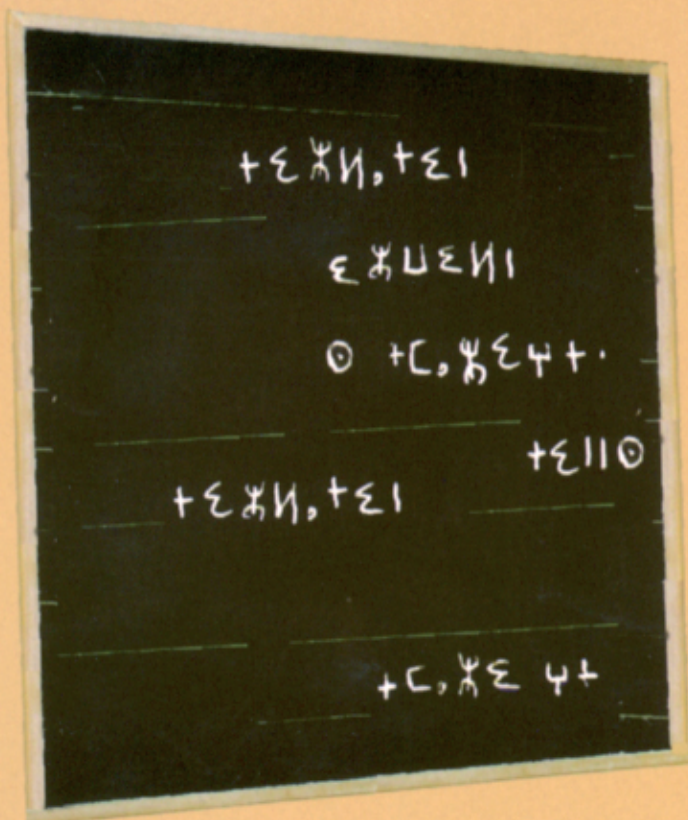 ⵜⵉⵣⵍⴰⵜⵉⵏ
ⵉⵣⵡⵉⵍⵏ
ⵙ ⵜⵎⴰⵣⵉⵖⵜ.
ⵜⵉⵏⵏⵙ
ⵜⵉⵣⵍⴰⵜⵉⵏ
ⵜⵎⴰⵣⵉⵖⵜ